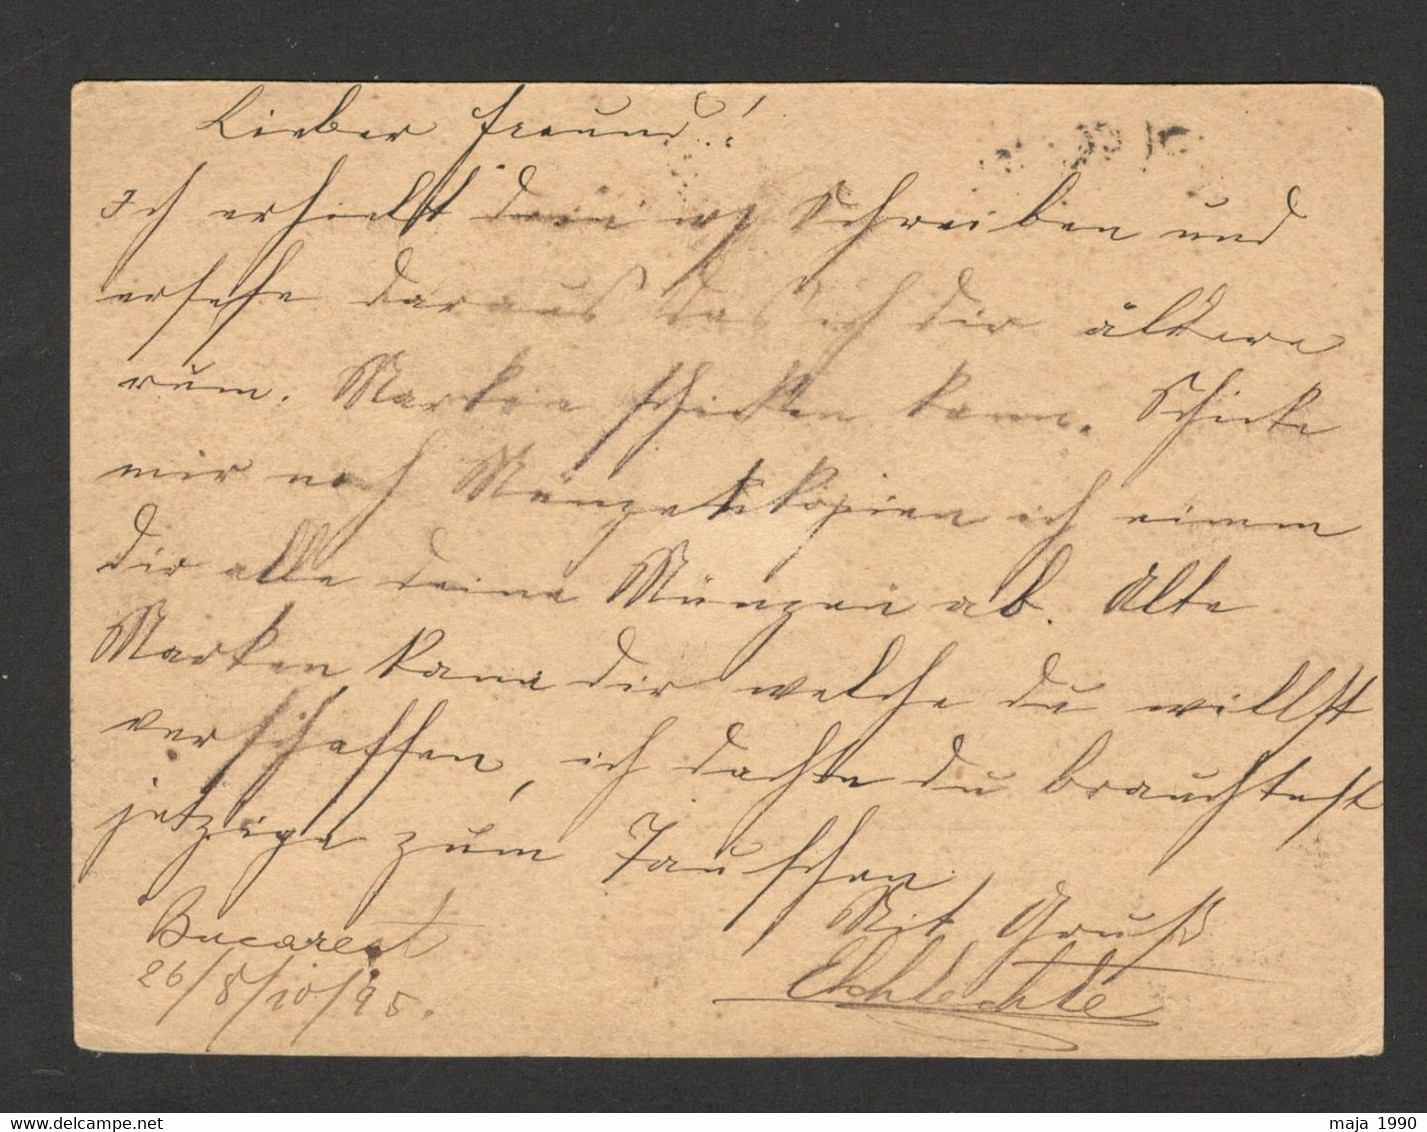 Lieber Freund!
Ich erhielt dein Schreiben und
ersehe daraus das ich dir ältere
rum. Marken schicken kann. Schicke
mir noch Münzen kopien ich
dir alle deine Münzen ab. Alte
Marken kann dir welche du willst
verschaffen, ich dachte du brauchtest
jetzige zum Tauschen,
Mit Gruß
Bucarest
26/8/10/95.
maja 1990